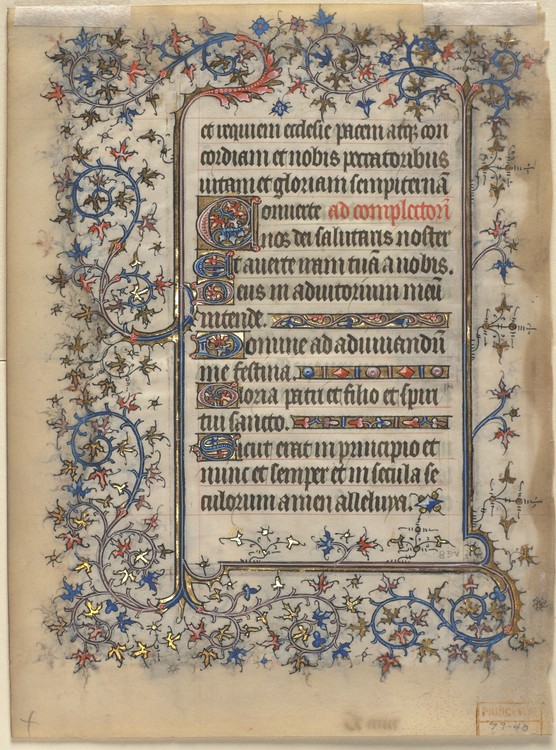 et requiem ecclesie pacem atq; con
cordiam et nobis peccatoribus
uitam et gloriam sempiternā
Conuerte ad complectoriū
nos dei salutaris noster
Et auerte iram tuā a nobis.
Deus in adiutorium meū
intende.
Domine ad adiuuandū
me festina.
Gloria patri et filio et spiri
tui sancto.
Sicut erat in principio et
nunc et semper et in secula se
culorum amen alleluya.